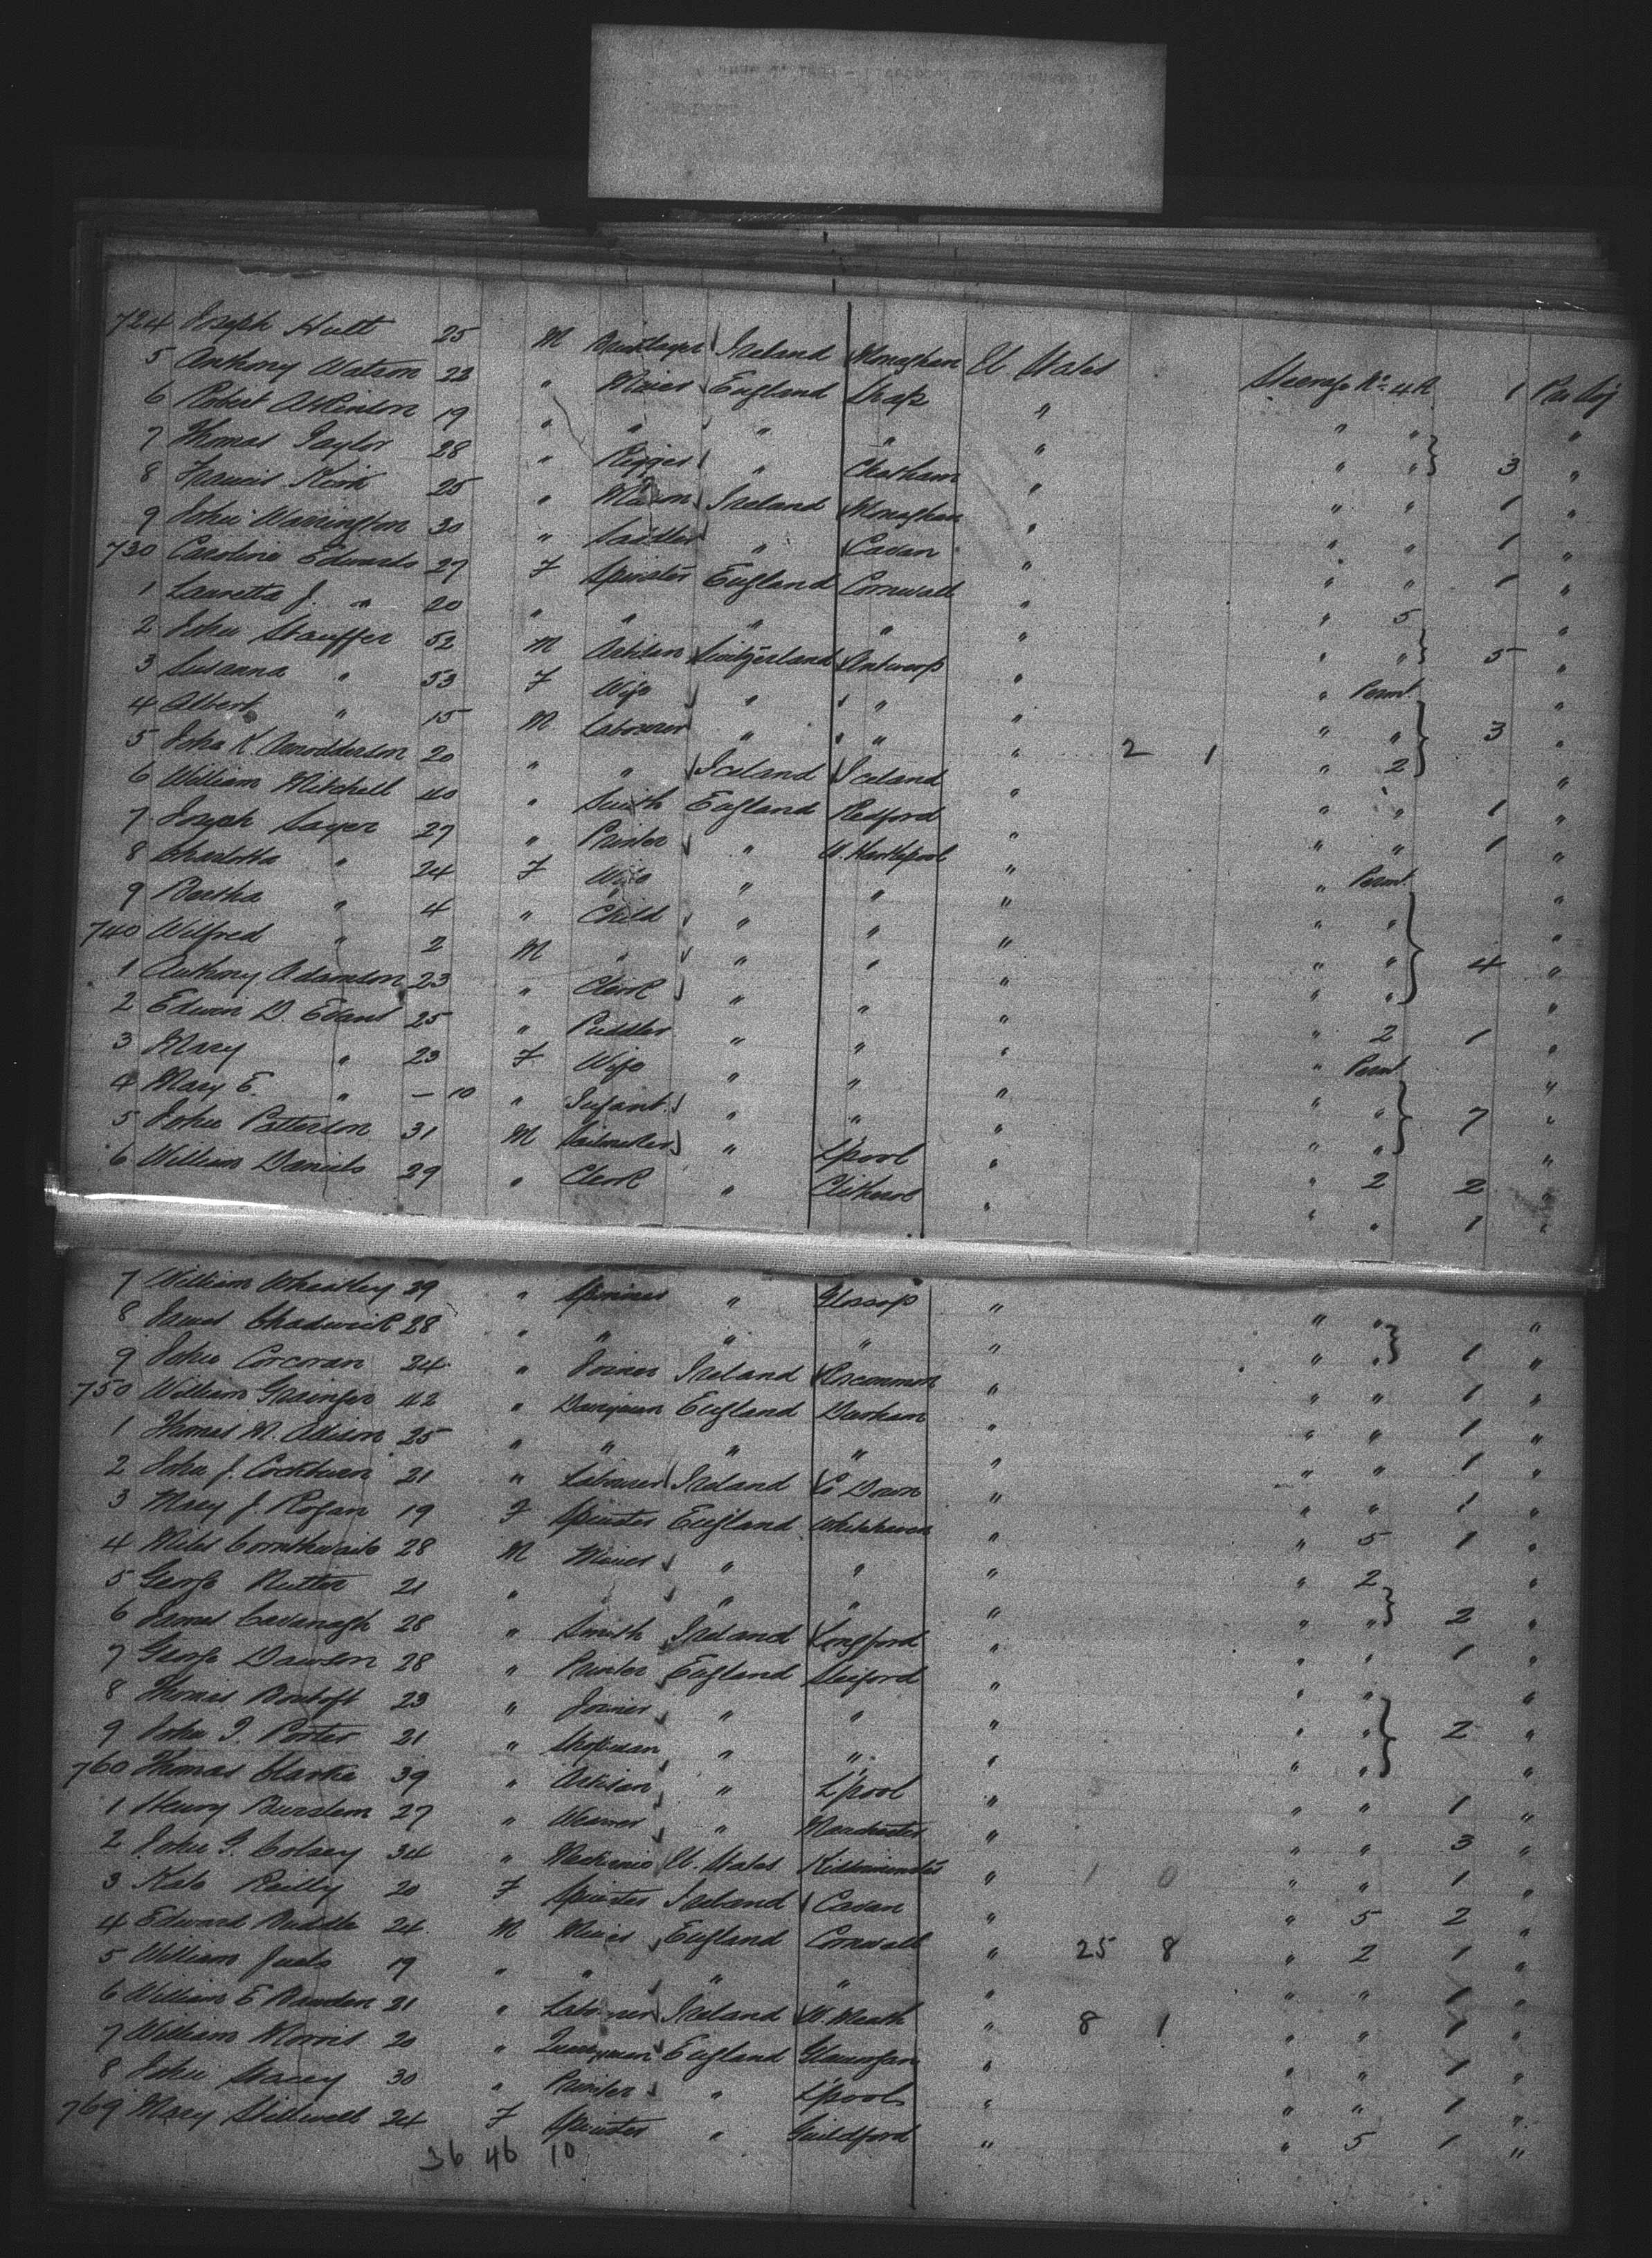 724 Joseph Hutt 25 M Ireland Monaghan U States Steerage No 4 R 1
5 Anthony Watson 22 " Miner England Shap " " "
6 Robert Atkinson 19 " " " " " " " 3 "
7 Thomas Taylor 28 " Rigger " Chatham " " " 1 "
8 Francis Kirk 25 " Mason Ireland Monaghan " " " 1 "
9 John Warrington 30 " Saddler " Cavan " " " 1 "
730 Caroline Edwards 27 F Spinster England Cornwall " " 5 "
1 Lauretta J. " 20 " " " " " " " 5 "
2 John Stauffer 52 M Artisan Switzerland Antwerp " " Perm't "
3 Susanna " 53 F Wife " " " " " 3 "
4 Albert " 15 M Labourer " " " 2 1 " 2 "
5 John K. 20 " " Iceland Iceland " " " 1 "
6 William Mitchell 40 " Smith England Redford " " " 1 "
7 Joseph Sayer 27 " Printer " W. Hartlepool " " Perm't "
8 Charlotta " 24 F Wife " " " " " "
9 Bertha " 4 " Child " " " " " 4 "
740 Wilfred " 2 M " " " " " " "
1 Anthony Adamson 23 " Clerk " " " " 2 1 "
2 Edwin D. Evans 25 " Puddler " " " " Perm't "
3 Mary " 23 F Wife " " " " " 7 "
4 Mary E. " — 10 " Infant " " " " " "
5 John Patterson 31 M Sailmaker " L'pool " " 2 2 "
6 William Daniels 29 " Clerk " Clitheroe " " " 1 "
7 William Wheatley 39 " Spinner " Glossop " " " "
8 James Chadwick 28 " " " " " " " 1 "
9 John Corcoran 24 " Joiner Ireland Roscommon " " " 1 "
750 William Grainger 42 " England Durham " " " 1 "
1 Thomas W. Allison 25 " " " " " " " 1 "
2 John J. Cockburn 21 " Labourer Ireland Co Down " " " 1 "
3 Mary J. Rogan 19 F Spinster England Whitehaven " " 5 1 "
4 Miles Cornthwaite 28 M Miner " " " " 2 "
5 George Rutter 21 " " " " " " " 2 "
6 James Cavanagh 28 " Smith Ireland Longford " " " 1 "
7 George Dawson 28 " Printer England Sleaford " " " "
8 Thomas 23 " Joiner " " " " " 2 "
9 John J. Porter 21 " Shopman " " " " " "
760 Thomas Clarke 39 " Artisan " L'pool " " " 1 "
1 Henry Burslem 27 " Weaver " Manchester " " " 3 "
2 John G. Colsey 34 " Mechanic U. States Kidderminster " 1 0 " " 1 "
3 Kate Reilly 20 F Spinster Ireland Cavan " " 5 2 "
4 Edward Ruddle 24 M Miner England Cornwall " 25 8 " 2 1 "
5 William 19 " " " " " " " 1 "
6 William E. 21 " Labourer Ireland W. Meath " 8 1 " " 1 "
7 William Morris 20 " Quarryman England Glamorgan " " " 1 "
8 John Stacey 30 " Printer " L'pool " " " 1 "
769 Mary Stillwell 24 F Spinster " Guildford " " 5 1 "
36 46 10